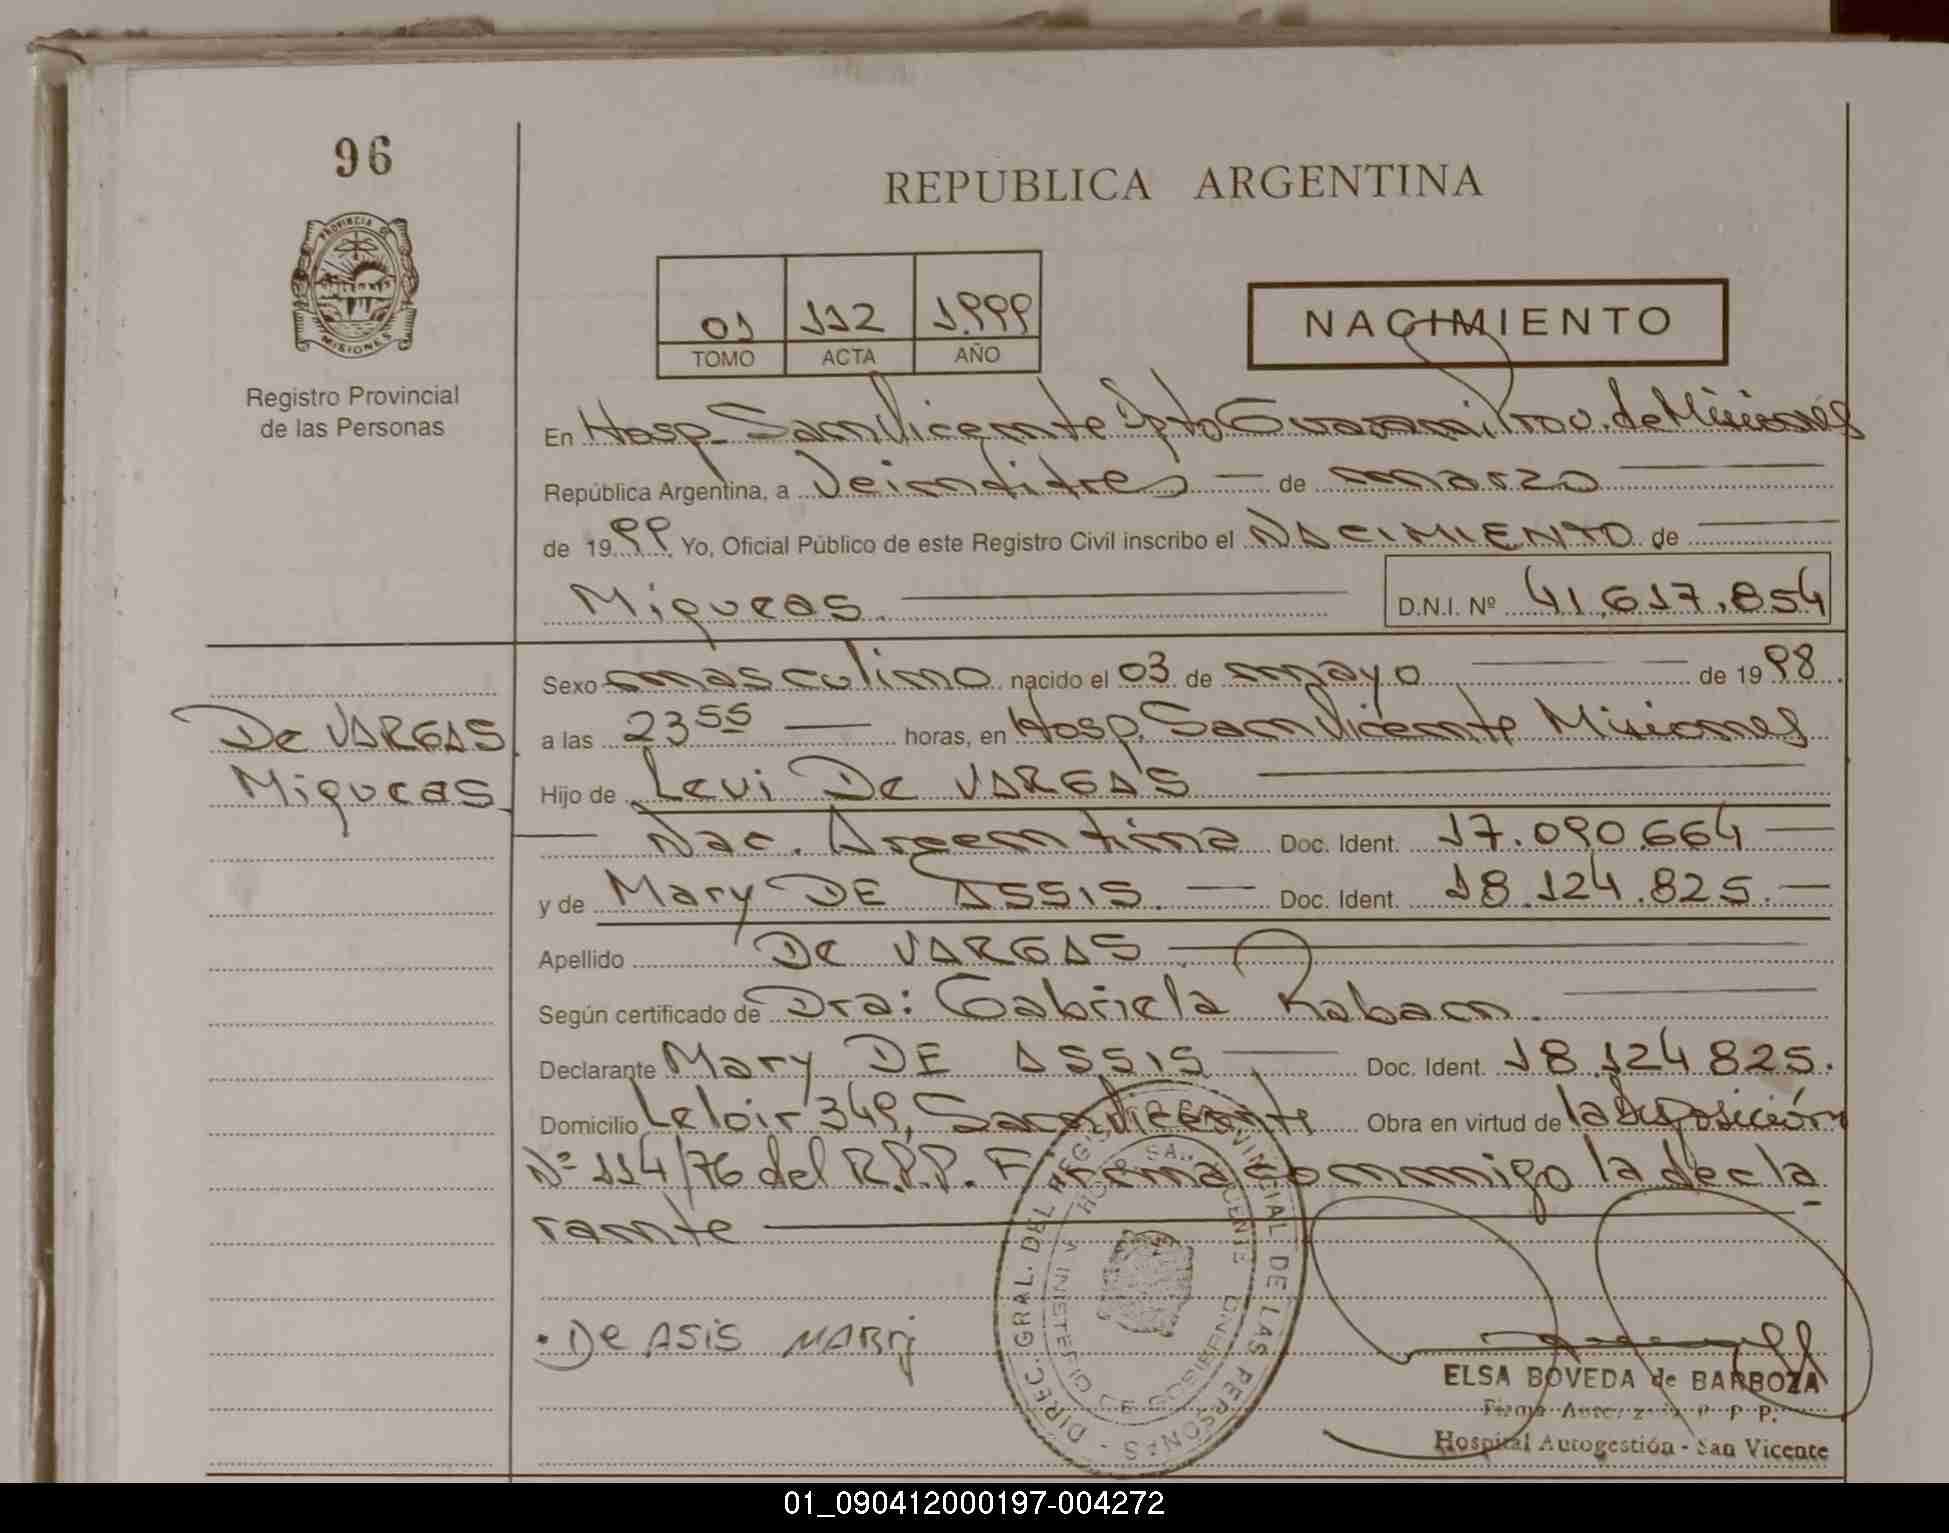 96
REPUBLICA ARGENTINA
PROVINCIA D
MISIONES
Registro Provincial
de las Personas
01 112 1999
TOMO ACTA AÑO
NACIMIENTO
En Hosp. San Vicente Dpto Guarani Prov. de Misiones
República Argentina, a Veintitres de marzo
de 1999 Yo, Oficial Público de este Registro Civil inscribo el NACIMIENTO de
Miqueas. D.N.I. Nº 41.617.854
Sexo masculino nacido el 03 de mayo de 1998
De VARGAS
Miqueas
a las 23 55 horas, en Hosp. San Vicente Misiones
Hijo de Levi De VARGAS
Nac. Argentina Doc. Ident. 17.090.664
y de Mary DE ASSIS. Doc. Ident. 18.124.825.
Apellido De VARGAS
Según certificado de Dra: Gabriela Raban.
Declarante Mary DE ASSIS Doc. Ident. 18.124.825.
Domicilio Leloir 349, San Vicente Obra en virtud de la Disposición
Nº 114/76 del R.P.P. Firma conmigo la decla
rante
. De ASiS MARy
DIREC. GRAL. DEL REGISTRO PROVINCIAL DE LAS PERSONAS
ELSA BOVEDA de BARBOZA
Firma P. P.
Hospital Autogestión - San Vicente
01_090412000197-004272